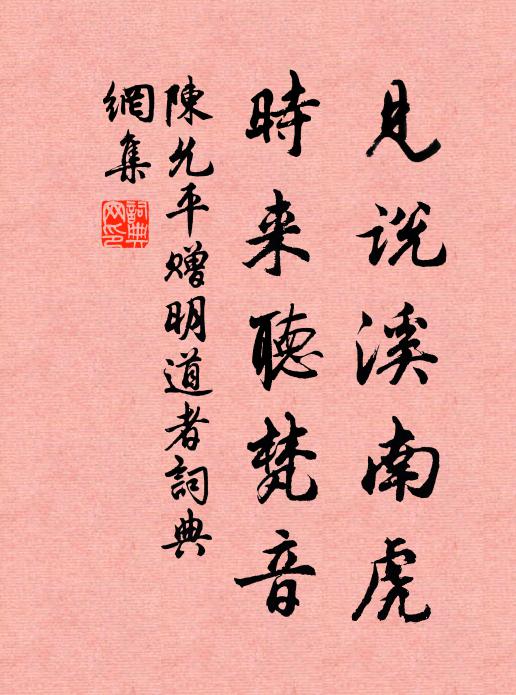 見説溪南虎
時来聽梵音
陳允平贈明道者詞典
網集
詞典網印